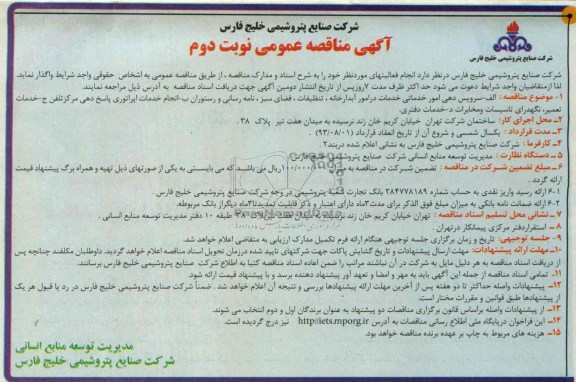 شرکت صنایع پتروشیمی خلیج فارس
آگهی مناقصه عمومی نوبت دوم
شرکت صنایع پتروشیمی خلیج فارس
شرکت صنایع پتروشیمی خلیج فارس درنظر دارد انجام فعالیتهای موردنظر خود را به شرح اسناد و مدارک مناقصه ، از طریق مناقصه عمومی به اشخاص حقوقی واجد شرایط واگذار نماید.
لذا ازمتقاضیان واجد شرایط دعوت می شود حد اکثر ظرف مدت ۷روزپس از تاریخ انتشار دومین آگهی جهت دریافت اسناد مناقصه به آدرس ذیل مراجعه نمایند.
۱- موضوع مناقصه : الف-سرویس دهی امور خدماتی خدمات درامور آبدارخانه ، تنظیفات ، فضای سبز ، نامه رسانی و رستوران ب-انجام خدمات اپراتوری پاسخ دهی مرکزتلفن ج-خدمات
تعمیر، نگهداری تاسیسات ومخابرات د-خدمات دفتری.
۲- محل اجرای کار: ساختمان شرکت تهران خیابان کریم خان زند نرسیده به میدان هفت تیر پلاک ۳۸ .
۳- مدت قرارداد : یکسال شمسی و شروع آن از تاریخ انعقاد قرارداد (۹۳/۰۸/۰۱)
۴- کارفرما : شرکت صنایع پتروشیمی خلیج فارس به نشانی اعلام شده دربند۲
۵- دستگاه نظارت : مدیریت توسعه منابع انسانی شرکت صنایع پتروشیمی خلیج فارس
۶- مبلغ تضمین شرکت در مناقصه : تضمین شرکت در مناقصه به مبلغ ریال می باشد که می بایستی به یکی از صورتهای ذیل تهیه و همراه برگ پیشنهاد قیمت
ارائه گردد .
۶-۱ ارائه رسید واریز نقدی به حساب شماره ۲۸۴۷۷۸۱۸۹ بانک تجارت پتروشیمی در وجه شرکت صنایع پتروشیمی خلیج فارس .
۶-۲ ارائه ضمانت نامه بانکی به میزان مبلغ فوق الذکر برای مدت ۳ماه دارای اعتبار و ذکر قابلیت تمدیدتا۳ماه دیگراز بانک مربوطه.
۷- نشانی محل تسلیم اسناد مناقصه : تهران خیابان کریم خان زند نرسیده به میدان هفت تیر پلاک ۳۸ طبقه ۱۰ دفتر مدیریت توسعه منابع انسانی .
۸- استقراردفتر مرکزی پیمانکار درتهران .
۹- جلسه توجیهی: تاریخ و زمان برگزاری جلسه توجیهی هنگام ارائه فرم تکمیل مدارک ارزیابی به متقاضی اعلام خواهد شد.
۱۰- مهلت ارائه پیشنهادات: مهلت ارسال پیشنهادات و تاریخ گشایش پاکات جهت شرکتهای تایید شده درزمان تحویل اسناد مناقصه اعلام خواهد گردید. داوطلبان مکلفند چنانچه پس
از دریافت اسناد مناقصه به هر دلیل مایل به شرکت در آن نباشند مراتب را ضمن اعاده اسناد مناقصه کتبا به اطلاع شرکت صنایع پتروشیمی خلیج فارس برسانند.
۱۱- تمامی اسناد مناقصه از جمله این آگهی باید به مهر و امضا و تعهد آور پیشنهاد دهنده برسد و با پیشنهاد قیمت ارائه شود.
۱۲- پیشنهادات واصله حداکثر تا دو هفته پس از آخرین مهلت ارائه پیشنهادها بررسی و نتیجه آن اعلام خواهد شد . ضمناً شرکت صنایع پتروشیمی خلیج فارس در رد یا قبول هر یک
از پیشنهادها طبق قوانین و مقررات مختار است.
۱۳- از پیشنهادات واصله براساس قانون برگزاری مناقصات دو پیشنهاد به عنوان برندگان اول و دوم انتخاب می شوند.
۱۴- این فراخوان درپایگاه ملی اطلاع رسانی مناقصات به آدرس http://iets.mporg.ir نیز درج گردیده است.
۱۵- هزینه های مربوط به چاپ بر عهده برنده مناقصه خواهد بود.
مدیریت توسعه منابع انسانی
شرکت صنایع پتروشیمی خلیج فارس